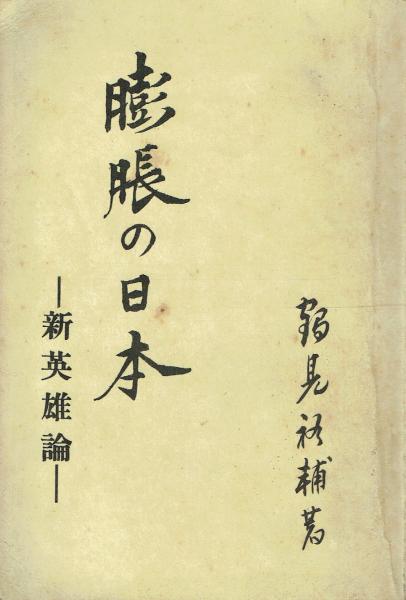 鶴見祐輔著
膨脹の日本
—新英雄論—